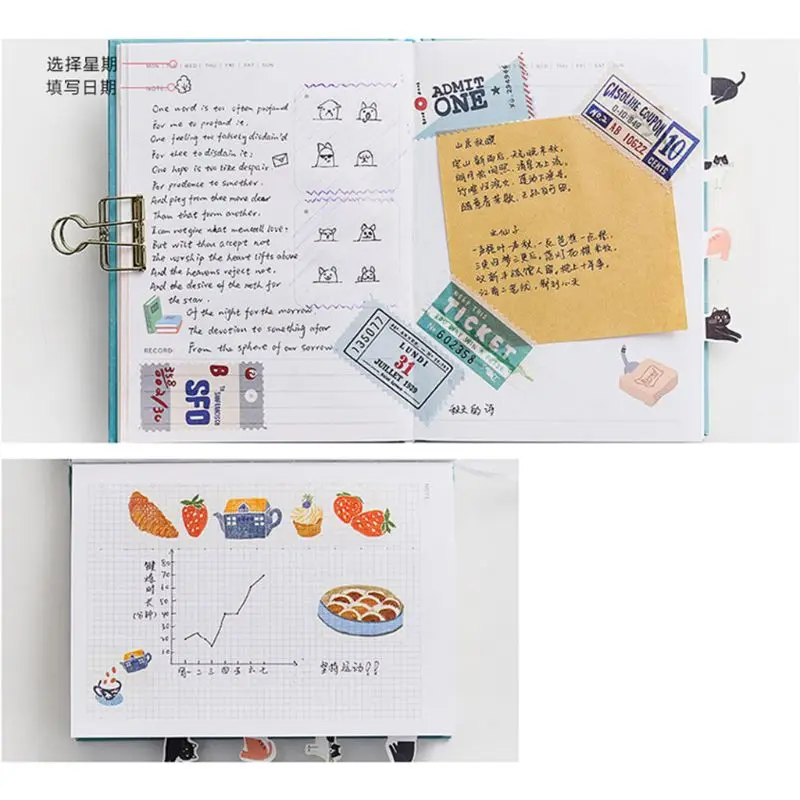 选择星期
填写日期
MON | TUE | WED | THU | FRI | SAT | SUN
NOTE
One word is too often profaned
For me to profane it.
One feeling too falsely disdain'd
For thee to disdain it;
One hope is too like despair
For prudence to smother.
And pity from thee more dear
Than that from another.
I can not give what men call love;
But wilt thou accept not
The worship the heart lifts above
And the heavens reject not.
And the desire of the moth for
the star.
Of the night for the morrow
The devotion to something afar
From the sphere of our sorrow
RECORD:
B
SFO
SAN FRANCISCO
MON | TUE | WED | THU | FRI | SAT | SUN
ADMIT
ONE
GASOLINE COUPON
No.2 AB 10622
10
CENTS
山居秋暝
空山新雨后，天气晚来秋。
明月松间照，清泉石上流。
竹喧归浣女，莲动下渔舟。
随意春芳歇，王孙自可留。
水仙子
一声梧叶一声秋，一点芭蕉一点愁，
三更归梦三更后。
TICKET
No 602358
135077
LUNDI
31
JUILLET 1929
秋天的诗
NOTE
锻炼时长
(分钟)
80
70
60
50
40
30
20
10
周一 二 三 四 五 六 七
坚持运动！！